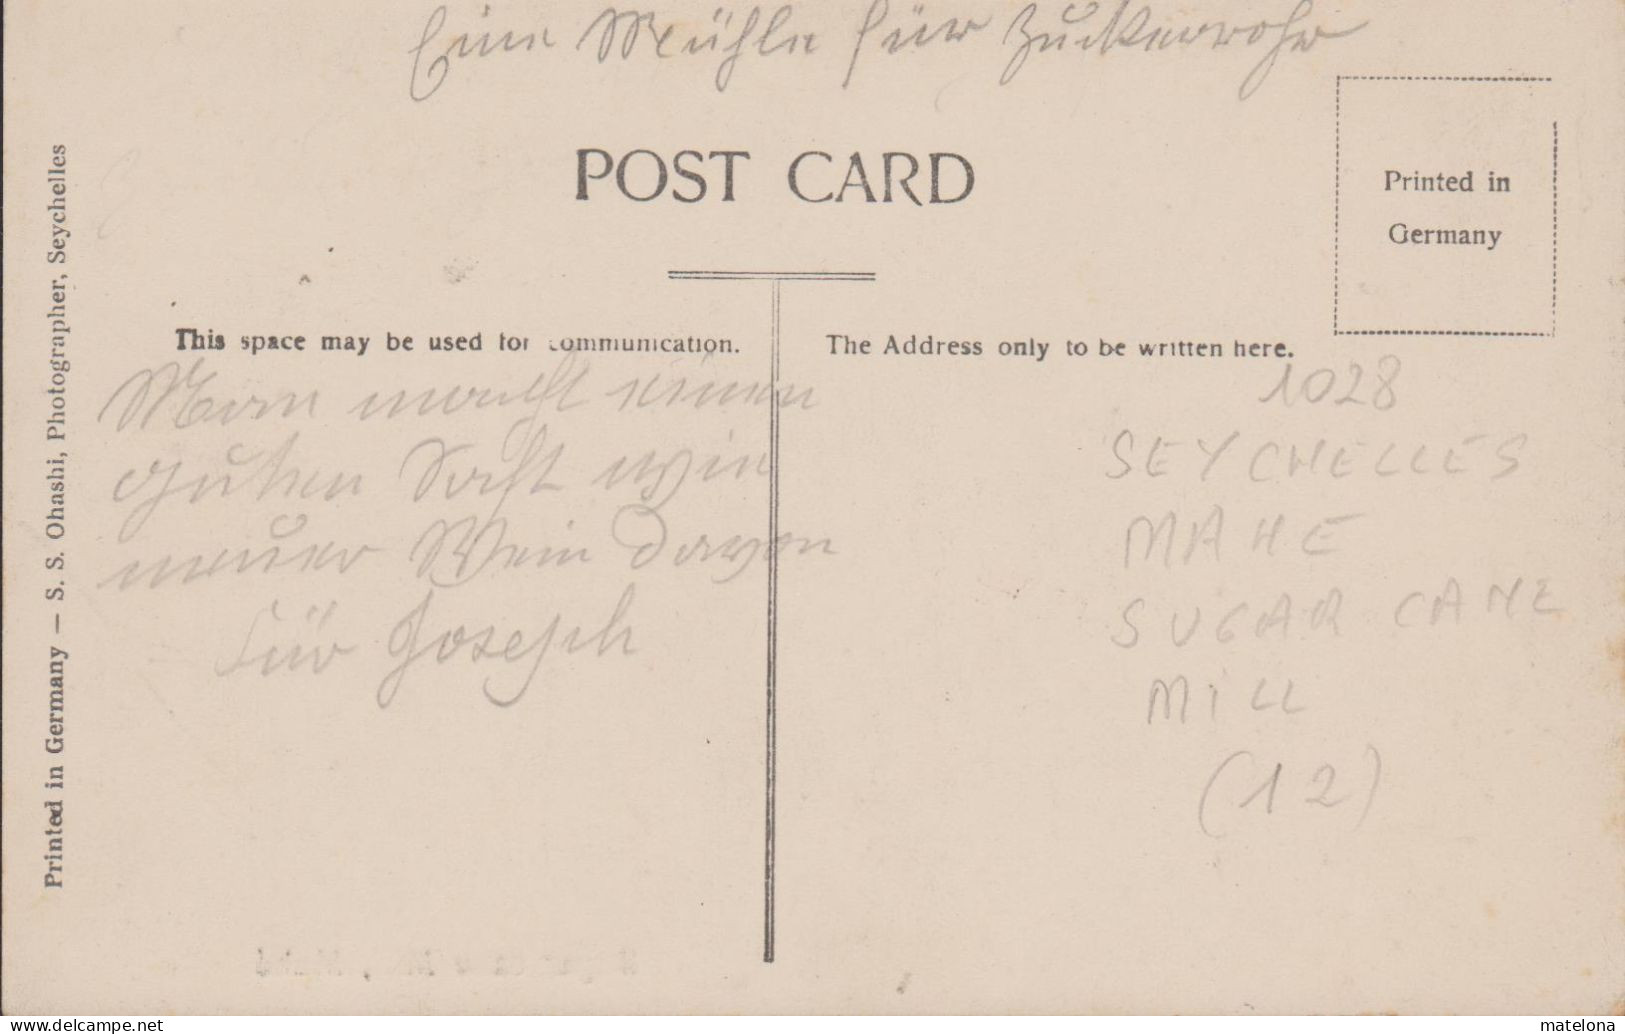 Eine Mühle für Zuckerrohr
POST CARD
Printed in
Germany
Printed in Germany — S. S. Ohashi, Photographer, Seychelles
This space may be used for communication.
The Address only to be written here.
Man macht einen
guten Saft wie
neuer Wein davon
Für Joseph
1028
SEYCHELLES
MAHE
SUGAR CANE
MILL
(12)
delcampe.net
matelona